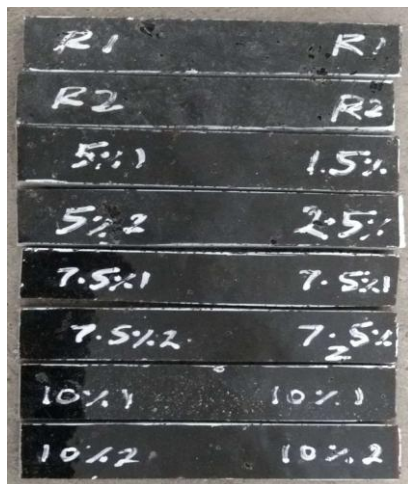 R1 R1
R2 R2
5%1 1.5%
5%2 2.5%
7.5%1 7.5%1
7.5%2 7.5%
2
10%1 10%1
10%2 10%2